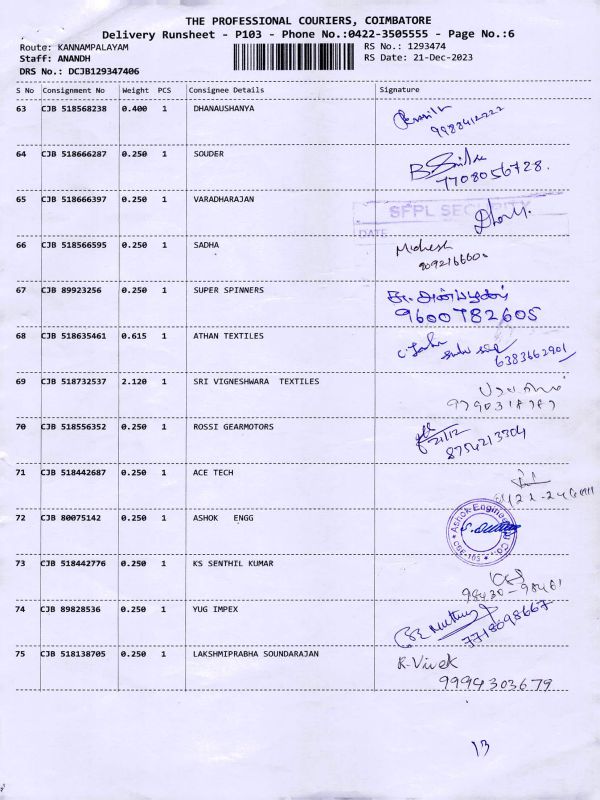 THE PROFESSIONAL COURIERS, COIMBATORE
Delivery Runsheet - P103 - Phone No.:0422-3505555 - Page No.:6
Route: KANNAMPALAYAM RS No.: 1293474
Staff: ANANDH RS Date: 21-Dec-2023
DRS No.: DCJB129347406
S No Consignment No Weight PCS Consignee Details Signature
63 CJB 518568238 0.400 1 DHANAUSHANYA
64 CJB 518666287 0.250 1 SOUDER
7708056728.
65 CJB 518666397 0.250 1 VARADHARAJAN
SFPL SECURITY
DATE
66 CJB 518566595 0.250 1 SADHA
67 CJB 89923256 0.250 1 SUPER SPINNERS
9600782605
68 CJB 518635461 0.615 1 ATHAN TEXTILES
6383662901
69 CJB 518732537 2.120 1 SRI VIGNESHWARA TEXTILES
70 CJB 518556352 0.250 1 ROSSI GEARMOTORS
21/12
8754213304
71 CJB 518442687 0.250 1 ACE TECH
72 CJB 80075142 0.250 1 ASHOK ENGG
73 CJB 518442776 0.250 1 KS SENTHIL KUMAR
98430-98461
74 CJB 89828536 0.250 1 YUG IMPEX
7718098667
75 CJB 518138705 0.250 1 LAKSHMIPRABHA SOUNDARAJAN
R-Vivek
9994303679
13